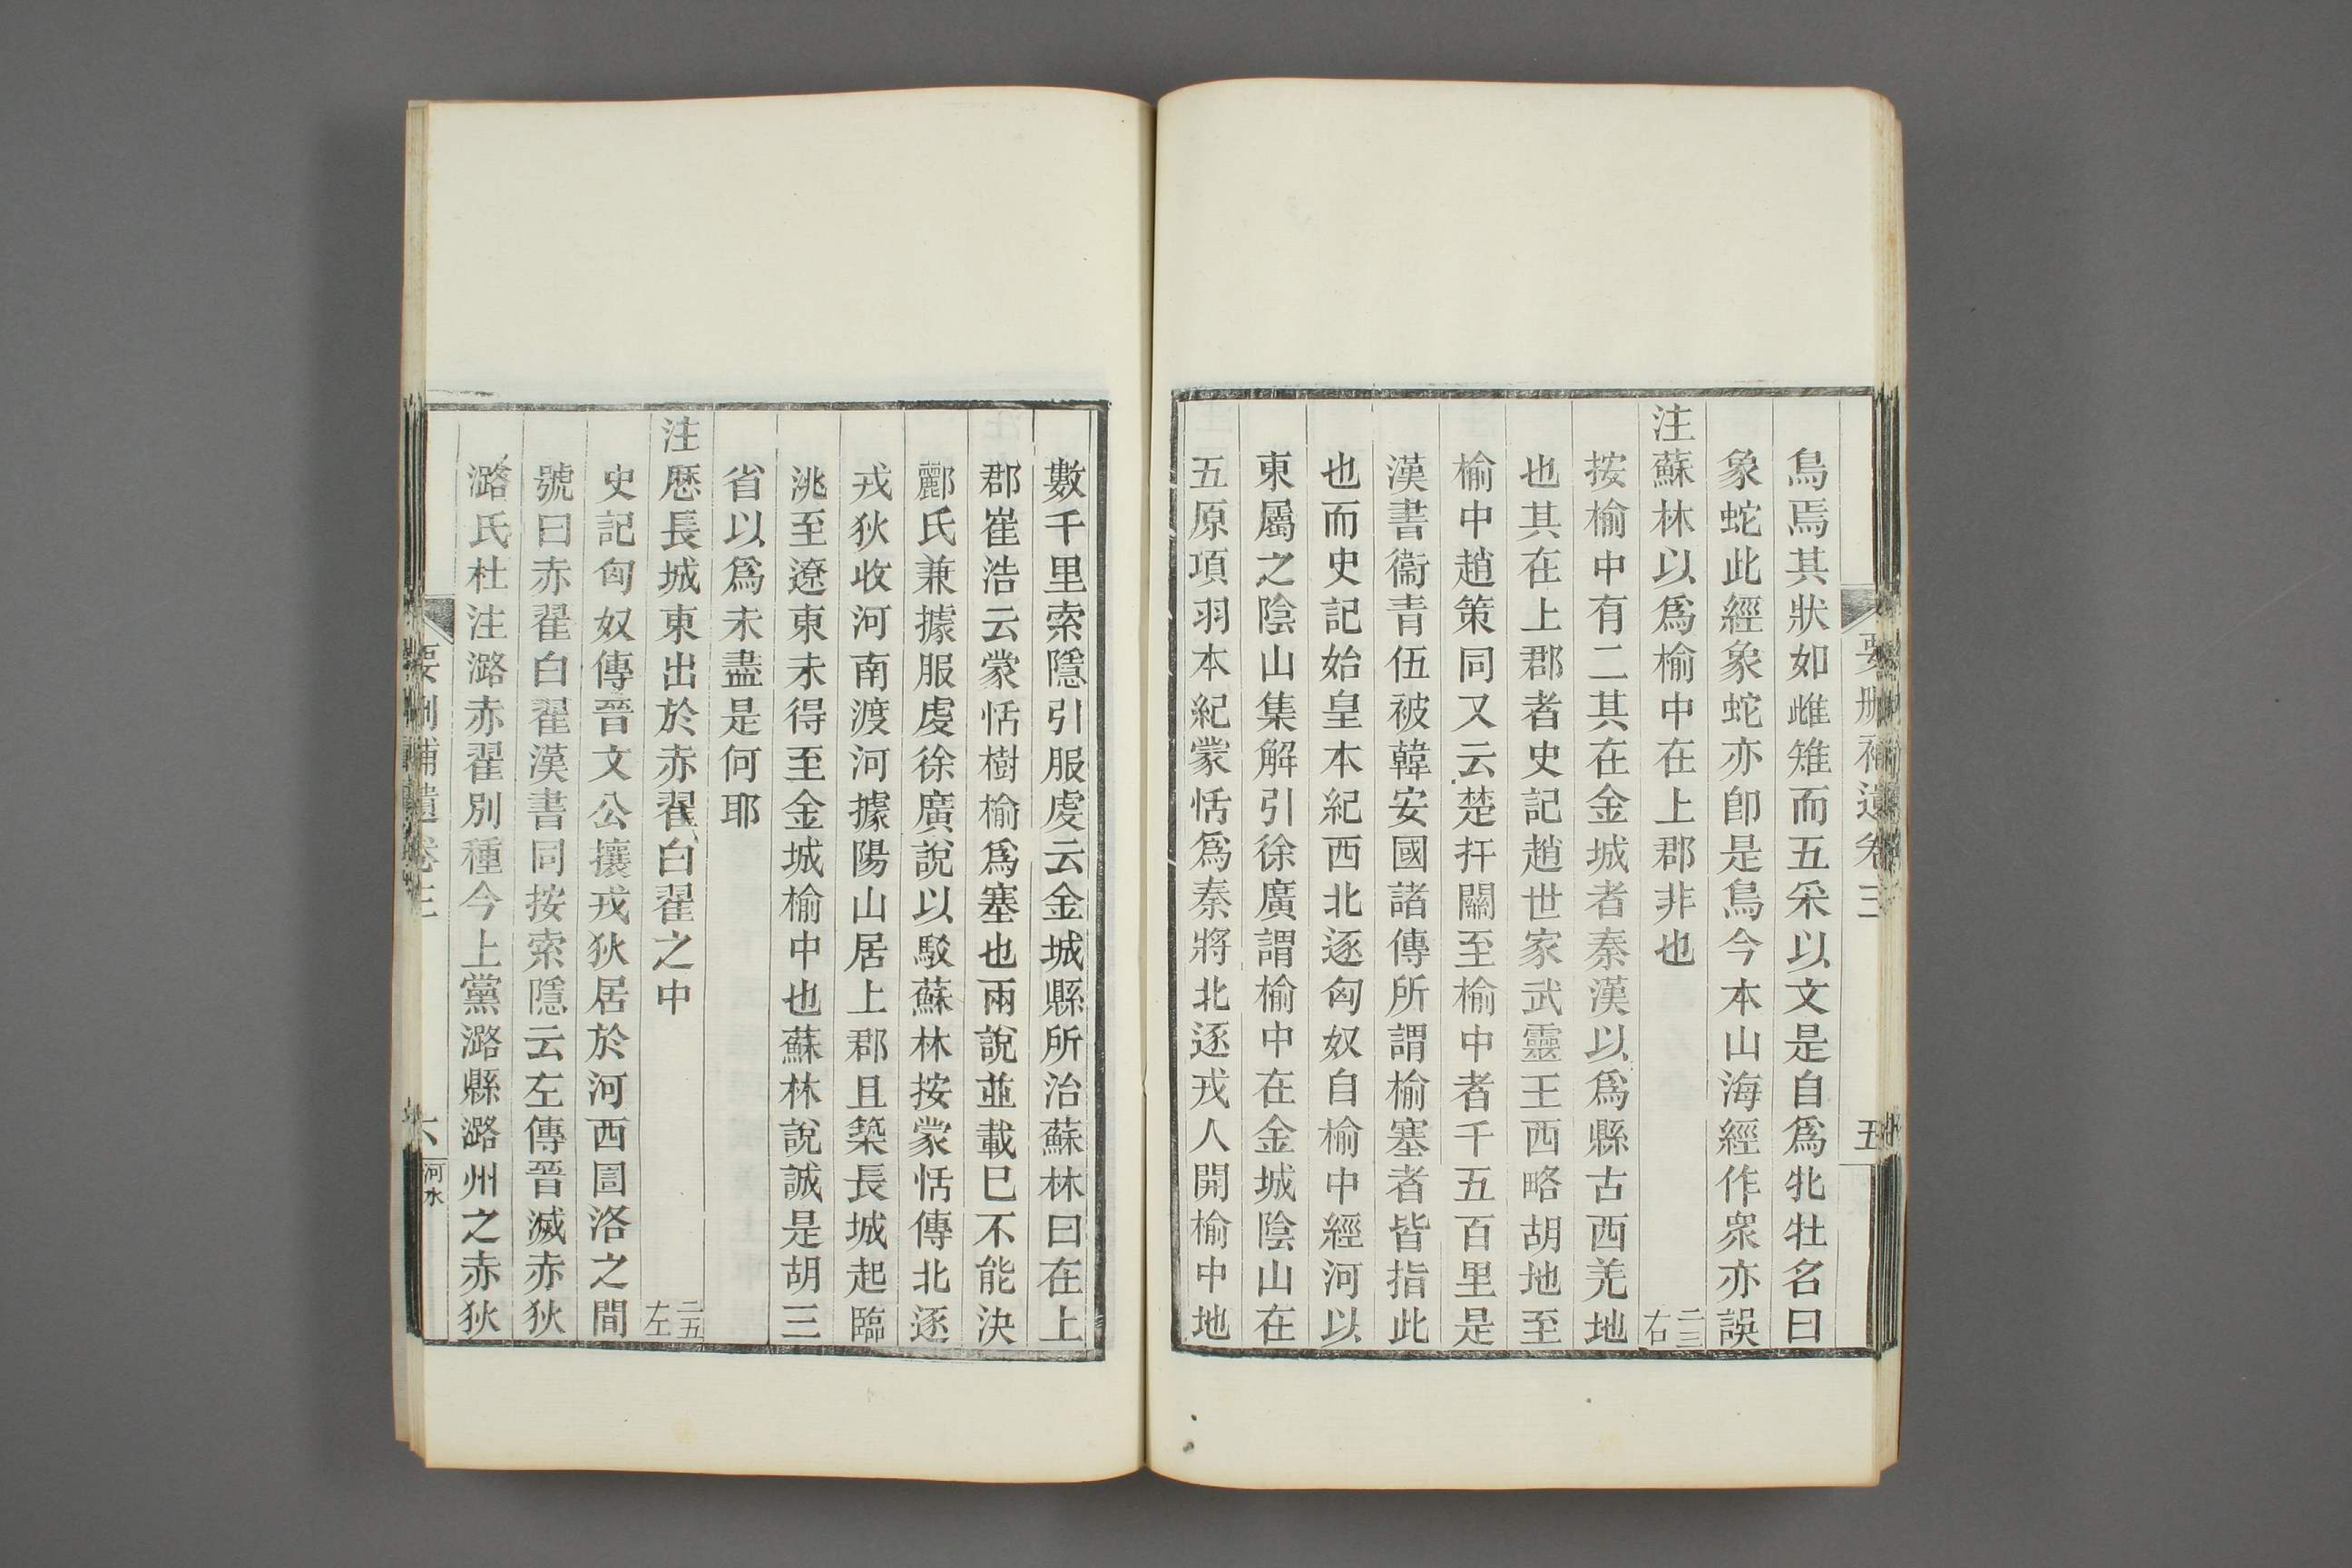 要刪補遺卷三 五
鳥焉其狀如雌雉而五采以文是自爲牝牡名曰
象蛇此經象蛇亦卽是鳥今本山海經作衆亦誤
注蘇林以爲榆中在上郡非也 二三右
按榆中有二其在金城者秦漢以爲縣古西羌地
也其在上郡者史記趙世家武靈王西略胡地至
榆中趙策同又云楚扞關至榆中者千五百里是
漢書衞青伍被韓安國諸傳所謂榆塞者皆指此
也而史記始皇本紀西北逐匈奴自榆中經河以
東屬之陰山集解引徐廣謂榆中在金城陰山在
五原項羽本紀蒙恬爲秦將北逐戎人開榆中地
數千里索隱引服虔云金城縣所治蘇林曰在上
郡崔浩云蒙恬樹榆爲塞也兩說並載已不能決
酈氏兼據服虔徐廣說以駁蘇林按蒙恬傳北逐
戎狄收河南渡河據陽山居上郡且築長城起臨
洮至遼東未得至金城榆中也蘇林說誠是胡三
省以爲未盡是何耶
注歷長城東出於赤翟白翟之中 二五左
史記匈奴傳晉文公攘戎狄居於河西圁洛之間
號曰赤翟白翟漢書同按索隱云左傳晉滅赤狄
潞氏杜注潞赤翟別種今上黨潞縣潞州之赤狄
要刪補遺卷三 六 河水